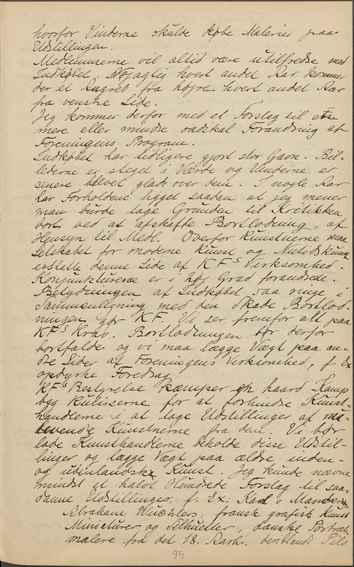 hvorfor Vinderne skulde købe Malerier paa
Udstillingen.
Medlemmerne vil altid være utilfredse med
Indkøbet, Nøjagtig hvert andet Aar kommer
der et Angreb fra højre hvert andet Aar
fra venstre Side.
Jeg kommer derfor med et Forslag til en
mere eller mindre radikal Forandring af
Foreningens Program.
Indkøbet har tidligere gjort stor Gavn. Bil-
lederne er steget i Værdi og Vinderne er
senere blevet glade over dem. I nogle Aar
har Forholdene ligget saadan at jeg mener
man burde tage Grunden til Kritikken
bort ved at afskaffe Bortlodning, af
Hensyn til Medl. Overfor Kunstnerne
Selskabet for moderne Kunst og
erstatte denne Side af KF Virksomhed.
Konjunkturerne er i høj Grad forandrede.
Betydningen af Indkøbet maa ringe i
Sammenligning med den Skade Bortlod-
ningen gør KF. Vi ser fremfor alt paa
KF's Krav. Bortlodningen bør derfor
bortfalde og vi maa lægge Vægt paa an-
dre Sider af Foreningens Virksomhed, f. Ex
opdyrke Foredrag.
KF's Bestyrelse kæmper en haard Kamp
bag Kulisserne for at forhindre Kunst-
handlerne i at tage Udstillinger af nu-
levende Kunstnerne fra dem. Vi bør
lade Kunsthandlerne beholde disse Udstil-
linger og lægge Vægt paa ældre inden-
og udenlandsk Kunst. Jeg kunde nævne
mindst et halvt Hundrede Forslag til saa-
danne Udstillinger. f. Ex.
Abraham Wuchters, fransk grafisk Kunst
Miniaturer og Silhuetter, danske Portræt-
malere fra det 18. Aarh.
95